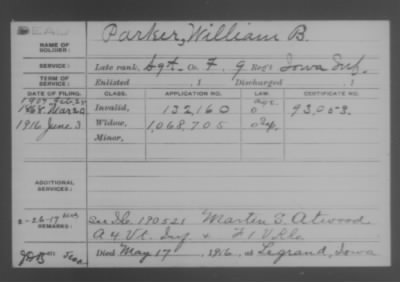 DEAD
NAME OF SOLDIER: Parker, William B.
SERVICE: Late rank, Sgt. Co. F, 9 Reg't Iowa Inf.
TERM OF SERVICE: Enlisted , 1 Discharged , 1
DATE OF FILING. CLASS. APPLICATION NO. LAW. CERTIFICATE NO.
1868 Mar 20 Invalid, 132,160 0 93,053
1916 June 3 Widow, 1,068,705
Minor,
ADDITIONAL SERVICES:
REMARKS: 2-26-17 190521 Martin B. Atwood
A 4 Vt. Inf. & F 1 V.R.C.
Died May 17, 1916, at Legrand, Iowa